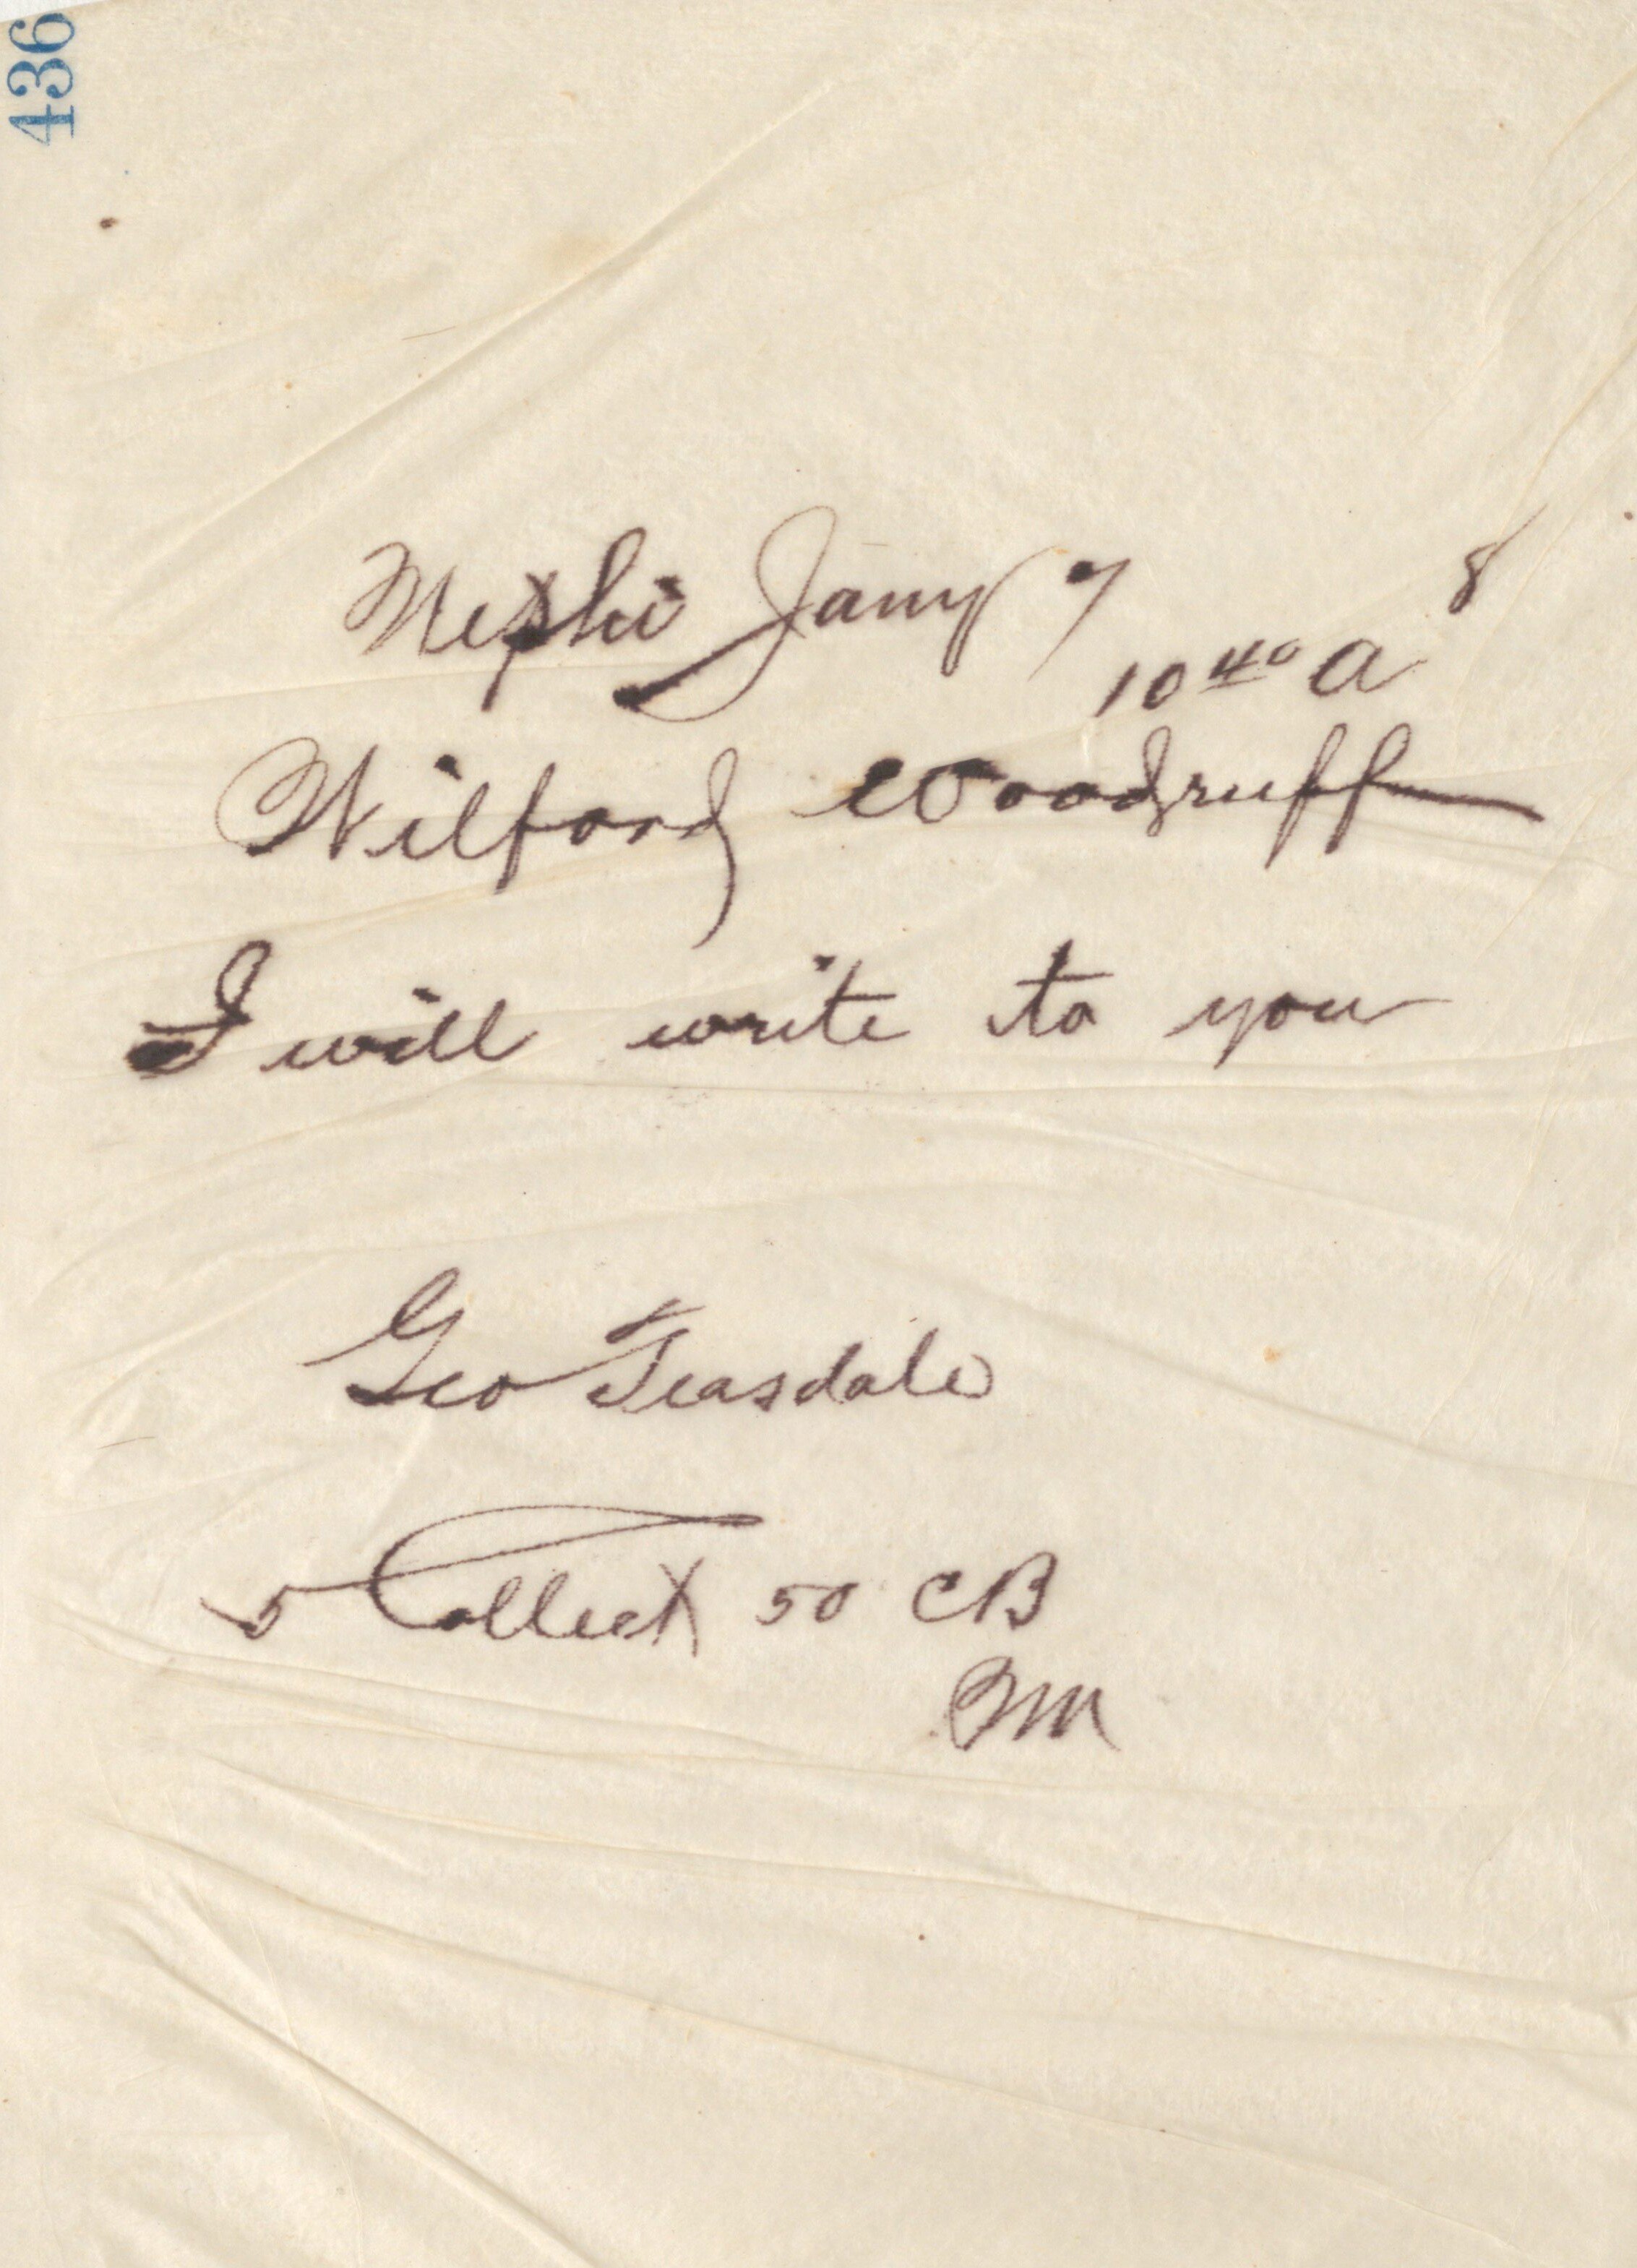 436
Nephi Jany 7 8
10 40 a
Wilford Woodruff
I will write to you
Geo Teasdale
5 Collect 50 CB